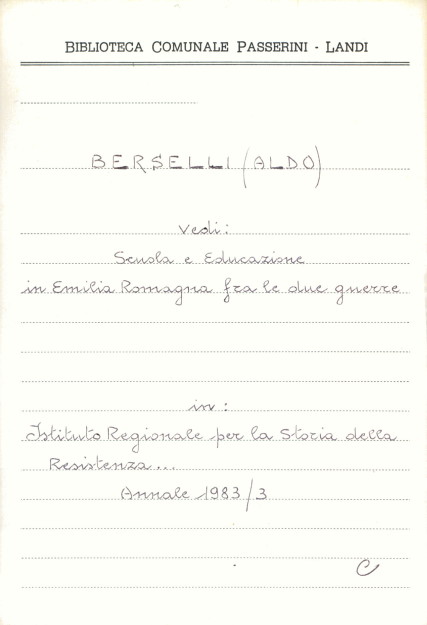 BIBLIOTECA COMUNALE PASSERINI - LANDI
BERSELLI (ALDO)
Vedi:
Scuola e Educazione
in Emilia Romagna fra le due guerre
in:
Istituto Regionale per la Storia della
Resistenza...
Annale 1983/3
C